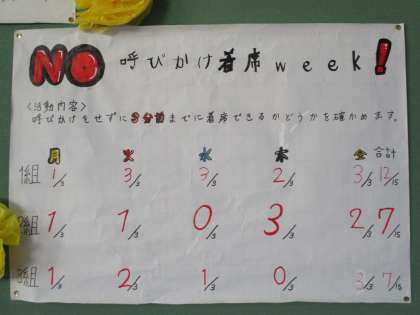 NO 呼びかけ着席week!
〈活動内容〉
呼びかけをせずに3分前までに着席できるかどうかを確かめます。
月 火 水 木 金 合計
1組 1/3 3/3 3/3 2/3 3/3 12/15
2組 1/3 1/3 0/3 3/3 2/3 7/15
3組 1/3 2/3 1/3 0/3 3/3 7/15